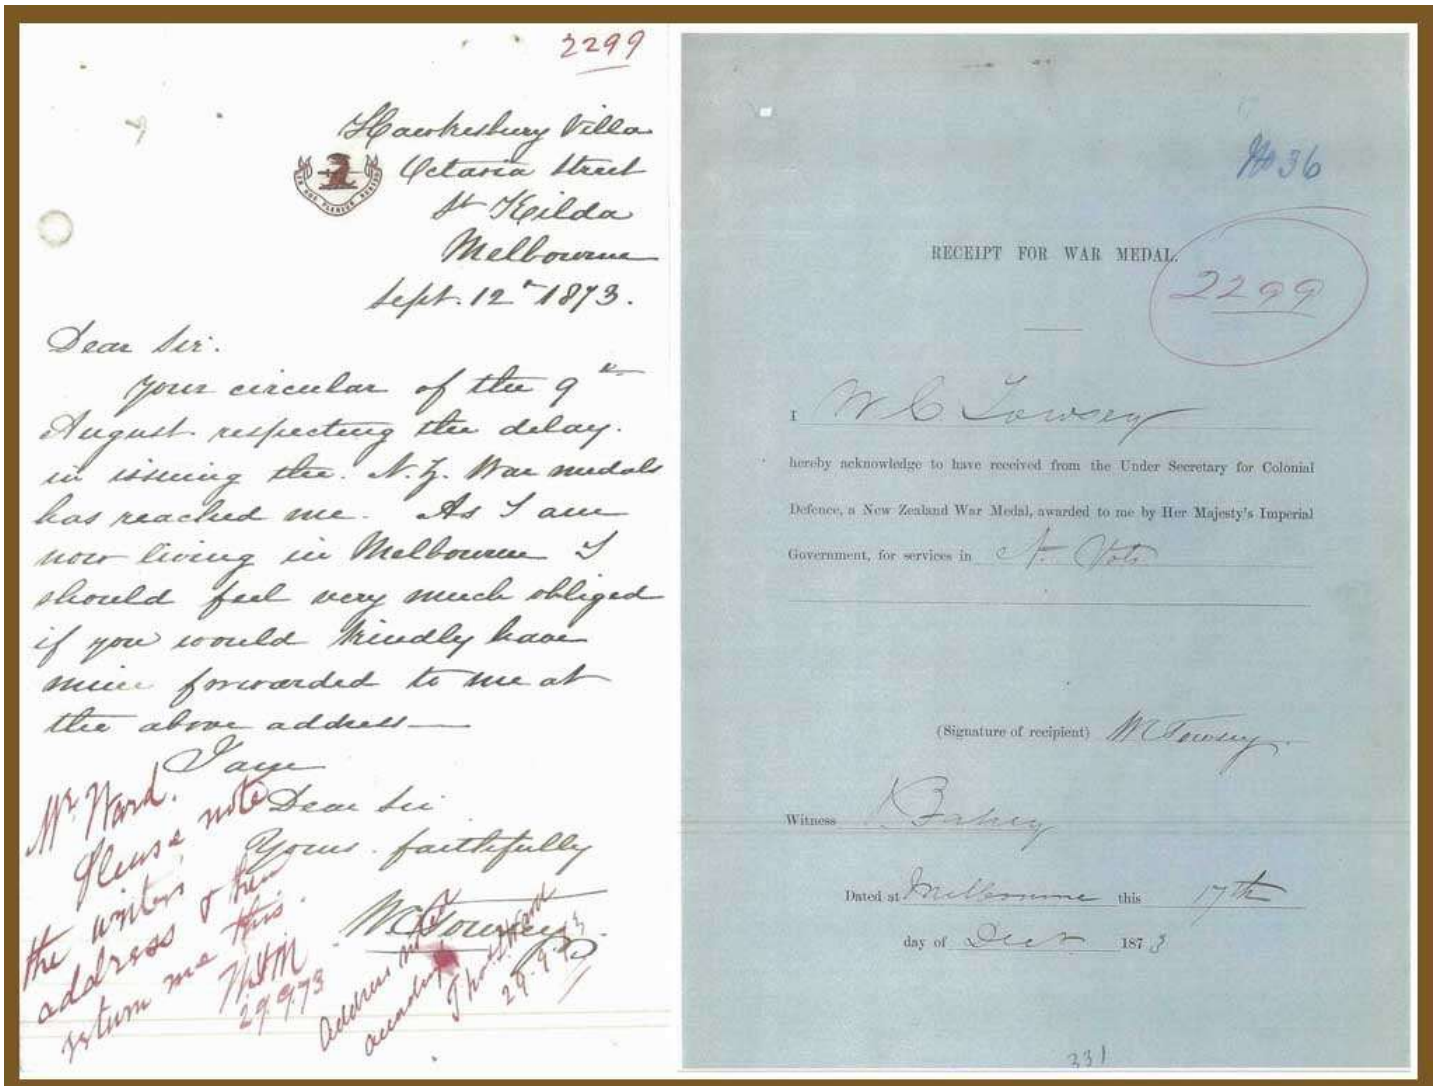 2299
Hawkesbury Villa
Octavia Street
St Kilda
Melbourne
Sept. 12th 1873.
Dear Sir.
Your circular of the 9th
August respecting the delay.
in issuing the. N.Z. War medals
has reached me. As I am
now living in Melbourne I
should feel very much obliged
if you would kindly have
mine forwarded to me at
the above address—
I am
Dear Sir
Yours faithfully
W C Towsey
Mr Ward.
Please note
the writers
address & then
return me this.
29.9.73
Address noted
accordingly
Thos. Ward
29.9.73
No 36
RECEIPT FOR WAR MEDAL.
2299
I W C Towsey
hereby acknowledge to have received from the Under Secretary for Colonial
Defence, a New Zealand War Medal, awarded to me by Her Majesty's Imperial
Government, for services in
(Signature of recipient) W C Towsey.
Witness Fahey
Dated at Melbourne this 17th
day of Decr 1873
331